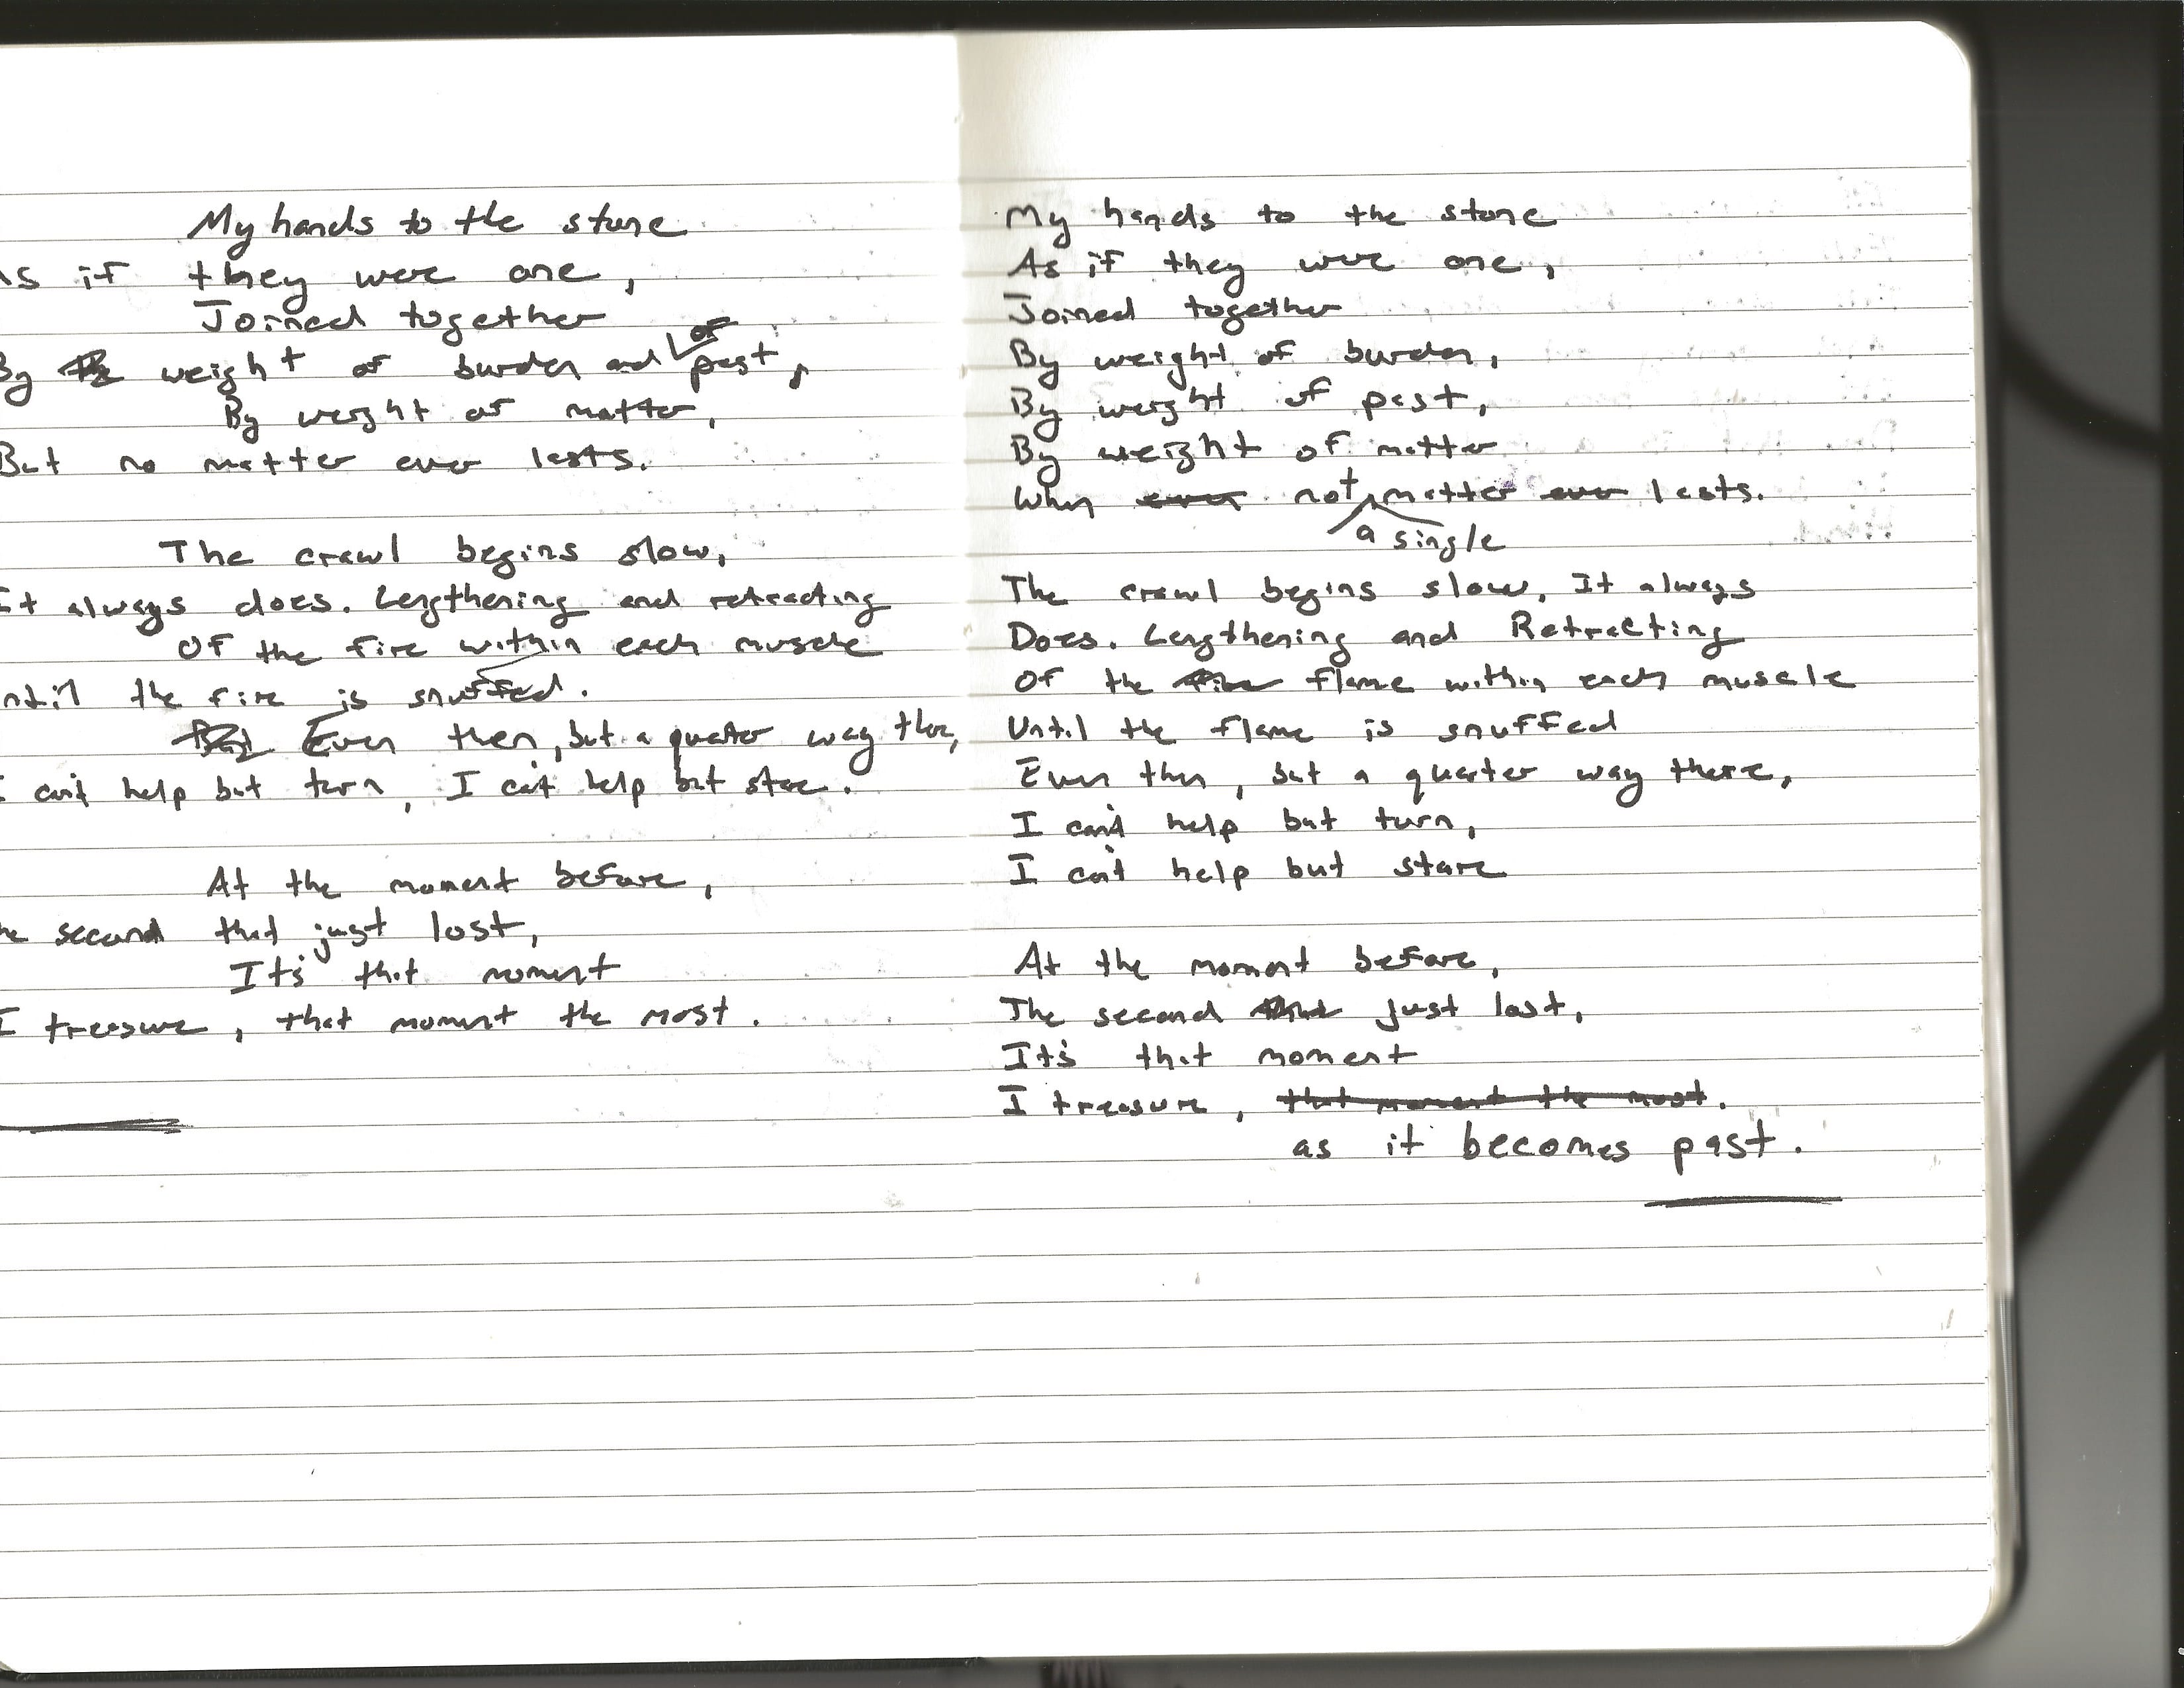 My hands to the stone
As if they were one,
Joined together
By the weight of burden and of past,
By weight of matter,
But no matter ever lasts.
The crawl begins slow,
It always does. Lengthening and retracting
Of the fire within each muscle
until the fire is snuffed.
Even then, but a quarter way there,
I can't help but turn, I can't help but stare.
At the moment before,
The second that just lost,
It's that moment
I treasure, that moment the most.
My hands to the stone
As if they were one,
Joined together
By weight of burden,
By weight of past,
By weight of matter
When ever not matter ever lasts.
a single
The crawl begins slow, It always
Does. Lengthening and Retracting
Of the fire flame within each muscle
Until the flame is snuffed
Even then, but a quarter way there,
I can't help but turn,
I can't help but stare
At the moment before,
The second that just lost,
It's that moment
I treasure, that moment the most.
as it becomes past.